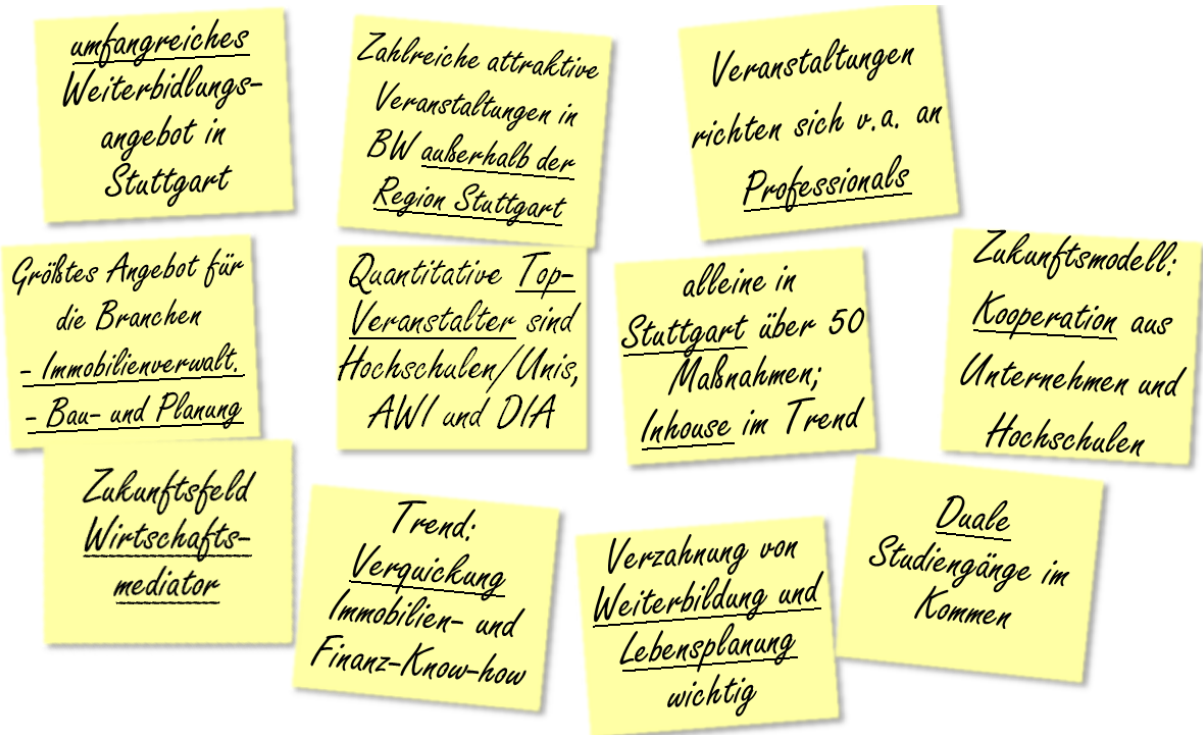 umfangreiches
Weiterbidlungs-
angebot in
Stuttgart
Zahlreiche attraktive
Veranstaltungen in
BW außerhalb der
Region Stuttgart
Veranstaltungen
richten sich v.a. an
Professionals
Größtes Angebot für
die Branchen
- Immobilienverwalt.
- Bau- und Planung
Quantitative Top-
Veranstalter sind
Hochschulen/Unis,
AWI und DIA
alleine in
Stuttgart über 50
Maßnahmen;
Inhouse im Trend
Zukunftsmodell:
Kooperation aus
Unternehmen und
Hochschulen
Zukunftsfeld
Wirtschafts-
mediator
Trend:
Verquickung
Immobilien- und
Finanz-Know-how
Verzahnung von
Weiterbildung und
Lebensplanung
wichtig
Duale
Studiengänge im
Kommen